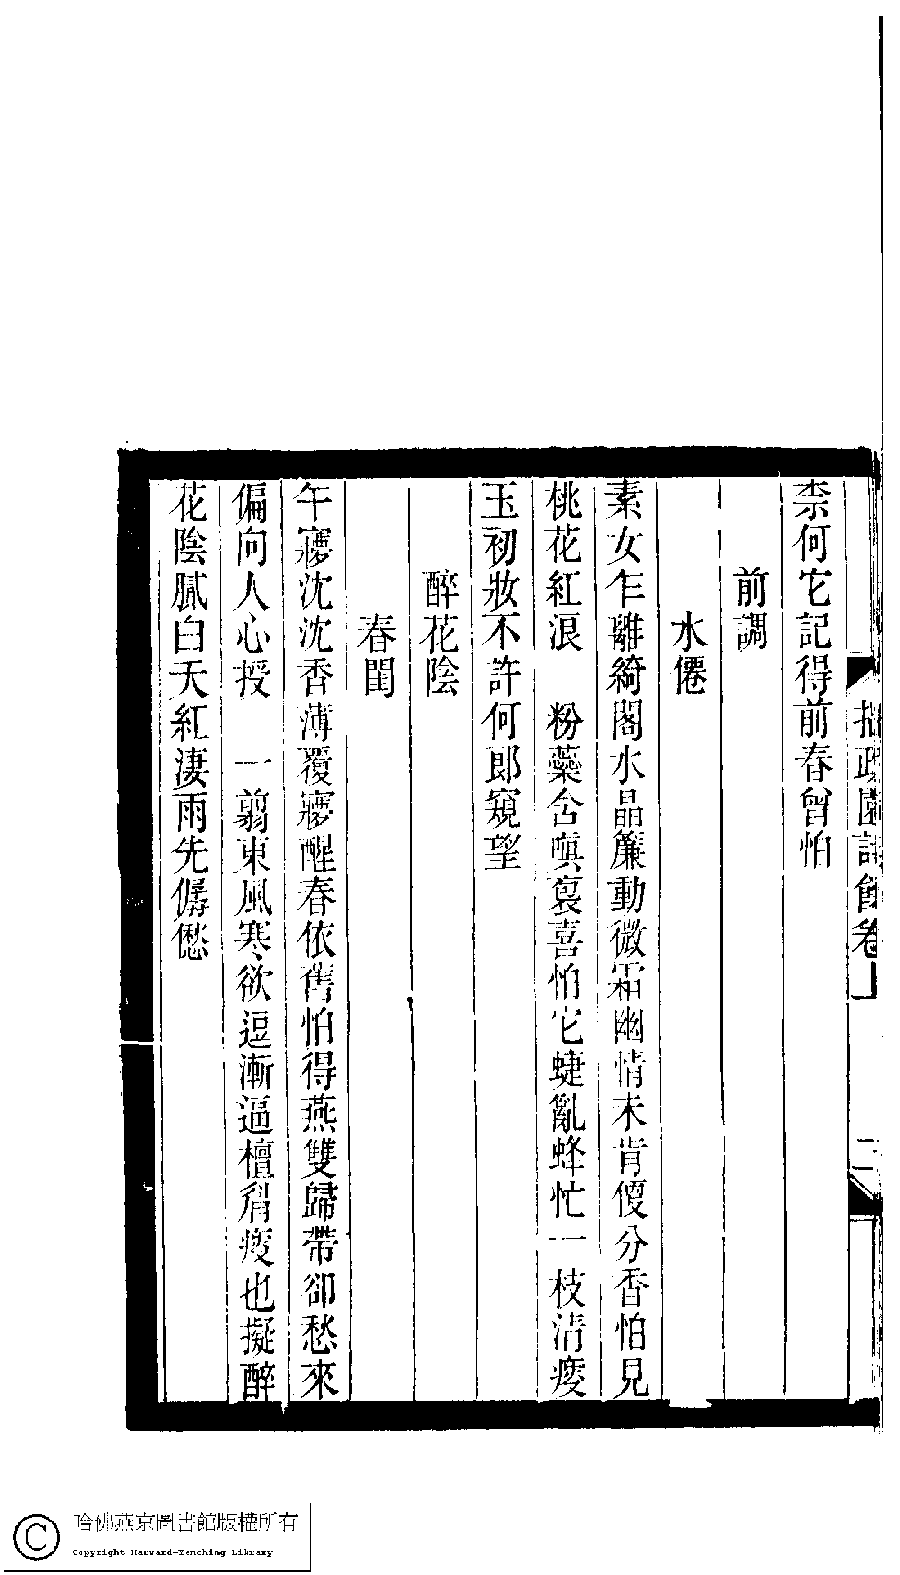 柰何它記得前春曾怕
前調
水僊
素女乍離綺閣水晶簾動微霜幽情未肯便分香怕見
桃花紅浪　粉藥含嗔衷喜怕它蜨亂蜂忙一枝清瘦
玉初妝不許何郎窺望
醉花陰
春閨
午㝱沈沈香薄覆㝱醒春依舊怕得燕雙歸帶卻愁來
偏向人心授　一翦東風寒欲逗漸逼檀綃瘦也擬醉
花陰膩白夭紅淒雨先僝僽
拙政園詩餘卷上
二
哈佛燕京圖書館版權所有
Copyright Harvard-Yenching Library